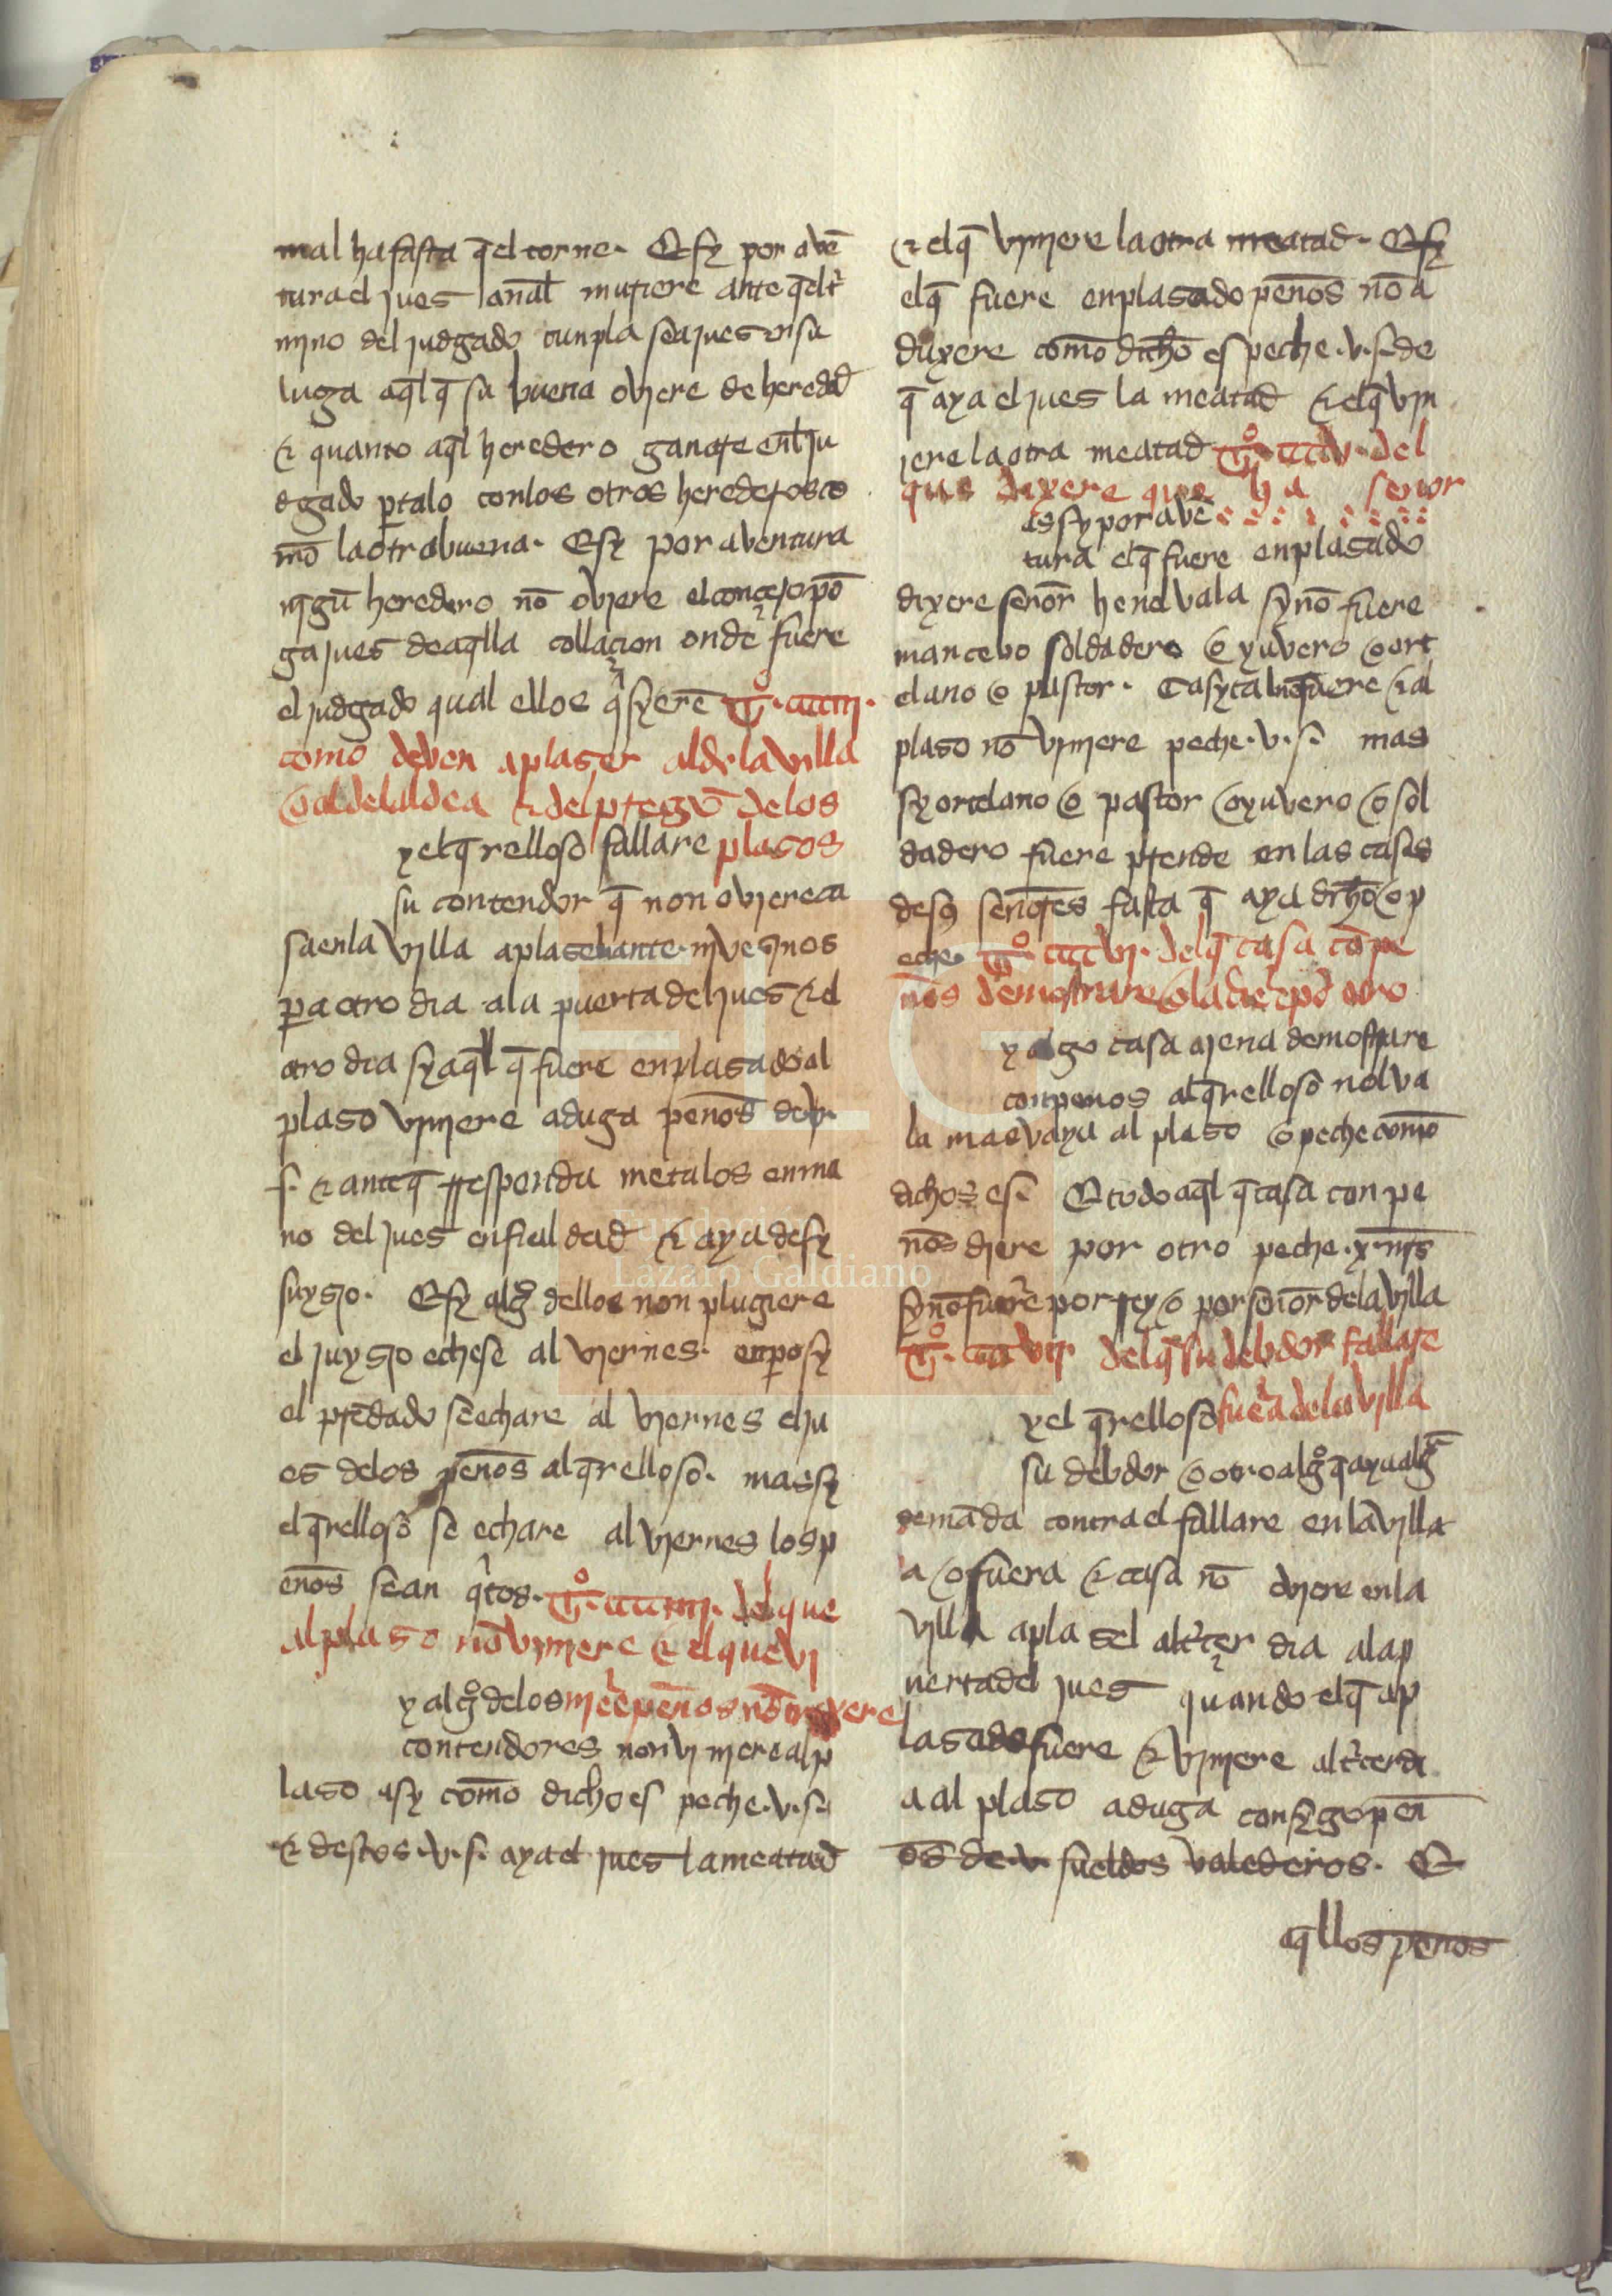 mal ha fasta q̄ el torne. E sy por avē
tura el jues an̄al muriere ante q̄ el t̄r
mino del judgado cunpla sea jues en su
luga aq̄l q̄ su buena oviere de heredad
& quanto aq̄l heredero ganare en̄l ju
dgado p̱talo con los otros herederos co
mō la otra buena. E sy por aventura
nīgū heredero nō oviere el conçejo pō
ga jues de aq̄lla collaçion onde fuere
el judgado qual ellos q̄ syerē
como deven aplaser al de la villa
o al de la aldea & del p̄tegō de los
y el q̄relloso fallare plasos
su contendor q̄ non oviere ca
sa en la villa aplasela ante .iij. vesinos
p̱a otro dia a la puerta del jues & el
otro dia sy aq̄l q̄ fuere enplasado al
plaso viniere aduga pen̄os de .v.
s. & ante q̄ rresponda metalos en ma
no del jues en fieldad & aya de sy
juysio. E sy alg̊ dellos non plugiere
el juysio echese al viernes. enp̱o sy
el p̄rēdado se echare al viernes el ju
es de los pen̄os al q̄relloso. mas sy
el q̄relloso se echare al viernes los p
en̄os sean q̇tos. Tº. ccciiij. del que
al plaso nō viniere & el que vi
y alg̊ de los niere pen̄os nō troxere
contendores non viniere al p
laso asy comō dicho es peche .v. s.
& destos .v. s. aya el jues la meatad
& el q̄ viniere la otra meatad. E sy
el q̄ fuere enplasado pen̄os nō a
duxere comō dicho es peche .v. s. de
q̄ aya el jues la meatad & el q̄ vin
iere la otra meatad Tº. cccv. del
que dixere que ha señor
es sy por avē
tura el q̄ fuere enplasado
dixere sen̄or he nol vala sy nō fuere
mancebo soldadero o yuvero o ort
elano o pastor. Ca sy tal nō fuere & al
plaso nō viniere peche .v. s. mas
sy ortelano o pastor o yuvero o sol
dadero fuere p̄rende en las casas
de sꝰ sen̄ores fasta q̄ aya dr̄ho o p
eche. Tº. cccvi. del q̄ casa cō pe
n̄os demostrare o la diere por otro
y algo casa ajena demostrare
con penos al q̄relloso nol va
la mas vaya al plaso o peche comō
dicho es. E todo aq̄l q̄ casa con pe
n̄os diere por otro peche .x. mr̄s
sy nō fuere por rey o por sen̄or de la villa
Tº. cccvij. del q̄ su debdor fallare
y el q̄relloso fuera de la villa
su debdor o otro alg̊ q̄ aya alḡ
demāda contra el fallare en la vill
a o fuera & casa nō oviere en la
villa aplasel al t̄rçer dia a la p
uerta del jues quando el q̄ ap
lasado fuere & viniere al t̄rcer di
a al plaso aduga consygo pen̄
os de .v. sueldos valederos. E
aq̄llos pen̄os